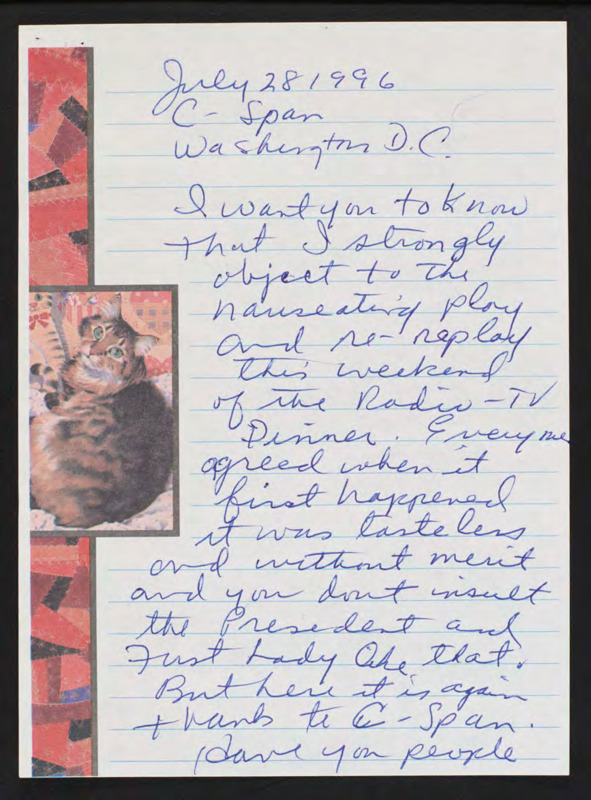 July 28 1996
C- Span
Washington D.C.
I want you to know
that I strongly
object to the
nauseating play
and re-replay
this weekend
of the Radio-TV
Dinner. Everyone
agreed when it
first happened
it was tasteless
and without merit
and you dont insult
the Presedent and
First Lady like that.
But here it is again
thanks to C-Span.
Have you people